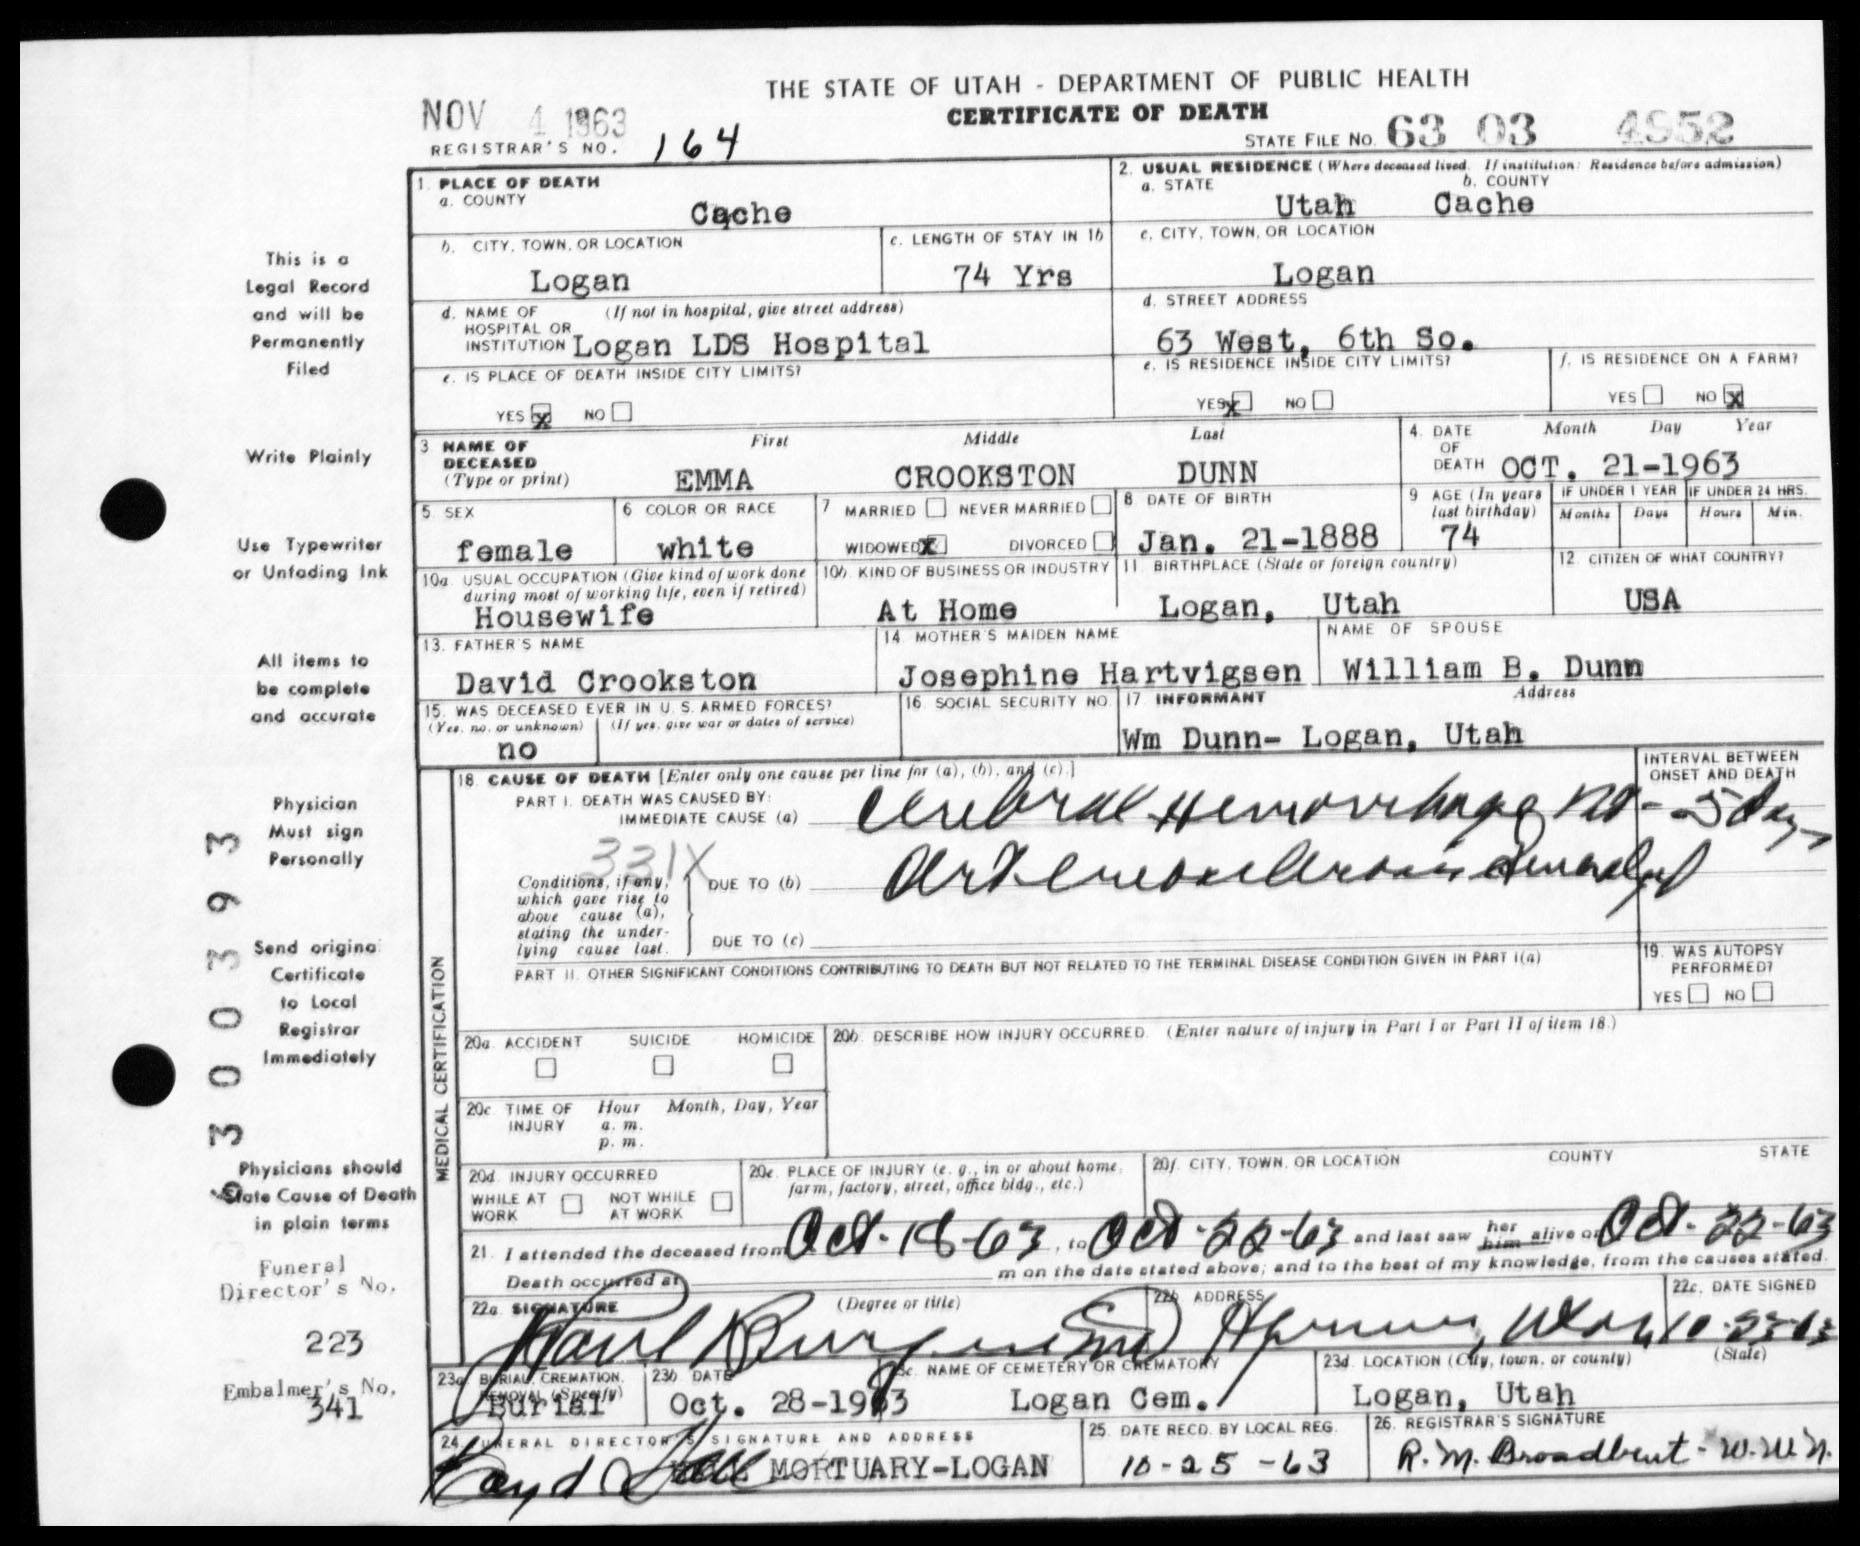 THE STATE OF UTAH - DEPARTMENT OF PUBLIC HEALTH
CERTIFICATE OF DEATH
NOV 4 1963
REGISTRAR'S NO. 164
STATE FILE NO. 63 03 4952
1. PLACE OF DEATH
a. COUNTY
Cache
2. USUAL RESIDENCE (Where deceased lived. If institution: Residence before admission)
a. STATE b. COUNTY
Utah Cache
b. CITY, TOWN, OR LOCATION
Logan
c. LENGTH OF STAY IN 1b
74 Yrs
c. CITY, TOWN, OR LOCATION
Logan
d. NAME OF HOSPITAL OR INSTITUTION (If not in hospital, give street address)
Logan LDS Hospital
d. STREET ADDRESS
63 West, 6th So.
e. IS PLACE OF DEATH INSIDE CITY LIMITS?
YES x NO
e. IS RESIDENCE INSIDE CITY LIMITS?
YES x NO
f. IS RESIDENCE ON A FARM?
YES NO x
3 NAME OF DECEASED (Type or print)
First Middle Last
EMMA CROOKSTON DUNN
4. DATE OF DEATH Month Day Year
OCT. 21-1963
5. SEX
female
6 COLOR OR RACE
white
7 MARRIED NEVER MARRIED
WIDOWED x DIVORCED
8 DATE OF BIRTH
Jan. 21-1888
9 AGE (In years last birthday)
74
IF UNDER 1 YEAR IF UNDER 24 HRS.
Months Days Hours Min.
10a. USUAL OCCUPATION (Give kind of work done during most of working life, even if retired)
Housewife
10b. KIND OF BUSINESS OR INDUSTRY
At Home
11. BIRTHPLACE (State or foreign country)
Logan, Utah
12. CITIZEN OF WHAT COUNTRY?
USA
13. FATHER'S NAME
David Crookston
14. MOTHER'S MAIDEN NAME
Josephine Hartvigsen
NAME OF SPOUSE
William B. Dunn
15. WAS DECEASED EVER IN U. S. ARMED FORCES?
(Yes, no, or unknown) (If yes, give war or dates of service)
no
16. SOCIAL SECURITY NO.
17. INFORMANT Address
Wm Dunn- Logan, Utah
MEDICAL CERTIFICATION
18. CAUSE OF DEATH [Enter only one cause per line for (a), (b), and (c).]
INTERVAL BETWEEN ONSET AND DEATH
PART I. DEATH WAS CAUSED BY:
IMMEDIATE CAUSE (a) Cerebral Hemorrhage - 5 days
331X
Conditions, if any, which gave rise to above cause (a), stating the underlying cause last.
DUE TO (b) Arteriosclerosis
DUE TO (c)
PART II. OTHER SIGNIFICANT CONDITIONS CONTRIBUTING TO DEATH BUT NOT RELATED TO THE TERMINAL DISEASE CONDITION GIVEN IN PART I(a)
19. WAS AUTOPSY PERFORMED?
YES NO
20a. ACCIDENT SUICIDE HOMICIDE
20b. DESCRIBE HOW INJURY OCCURRED. (Enter nature of injury in Part I or Part II of item 18.)
20c. TIME OF INJURY Hour Month, Day, Year
a. m.
p. m.
20d. INJURY OCCURRED
WHILE AT WORK NOT WHILE AT WORK
20e. PLACE OF INJURY (e. g., in or about home, farm, factory, street, office bldg., etc.)
20f. CITY, TOWN, OR LOCATION COUNTY STATE
21. I attended the deceased from Oct-18-63, to Oct-22-63 and last saw her him alive on Oct-22-63
Death occurred at m on the date stated above; and to the best of my knowledge, from the causes stated.
22a. SIGNATURE (Degree or title)
22b. ADDRESS
22c. DATE SIGNED
10-23-63
23a. BURIAL, CREMATION, REMOVAL (Specify)
Burial
23b. DATE
Oct. 28-1963
23c. NAME OF CEMETERY OR CREMATORY
Logan Cem.
23d. LOCATION (City, town, or county) (State)
Logan, Utah
24. FUNERAL DIRECTOR'S SIGNATURE AND ADDRESS
MORTUARY-LOGAN
25. DATE RECD. BY LOCAL REG.
10-25-63
26. REGISTRAR'S SIGNATURE
R. M. Broadbent - W. W. N.
This is a
Legal Record
and will be
Permanently
Filed
Write Plainly
Use Typewriter
or Unfading Ink
All items to
be complete
and accurate
Physician
Must sign
Personally
Send original
Certificate
to Local
Registrar
Immediately
Physicians should
State Cause of Death
in plain terms
Funeral
Director's No.
223
Embalmer's No.
341